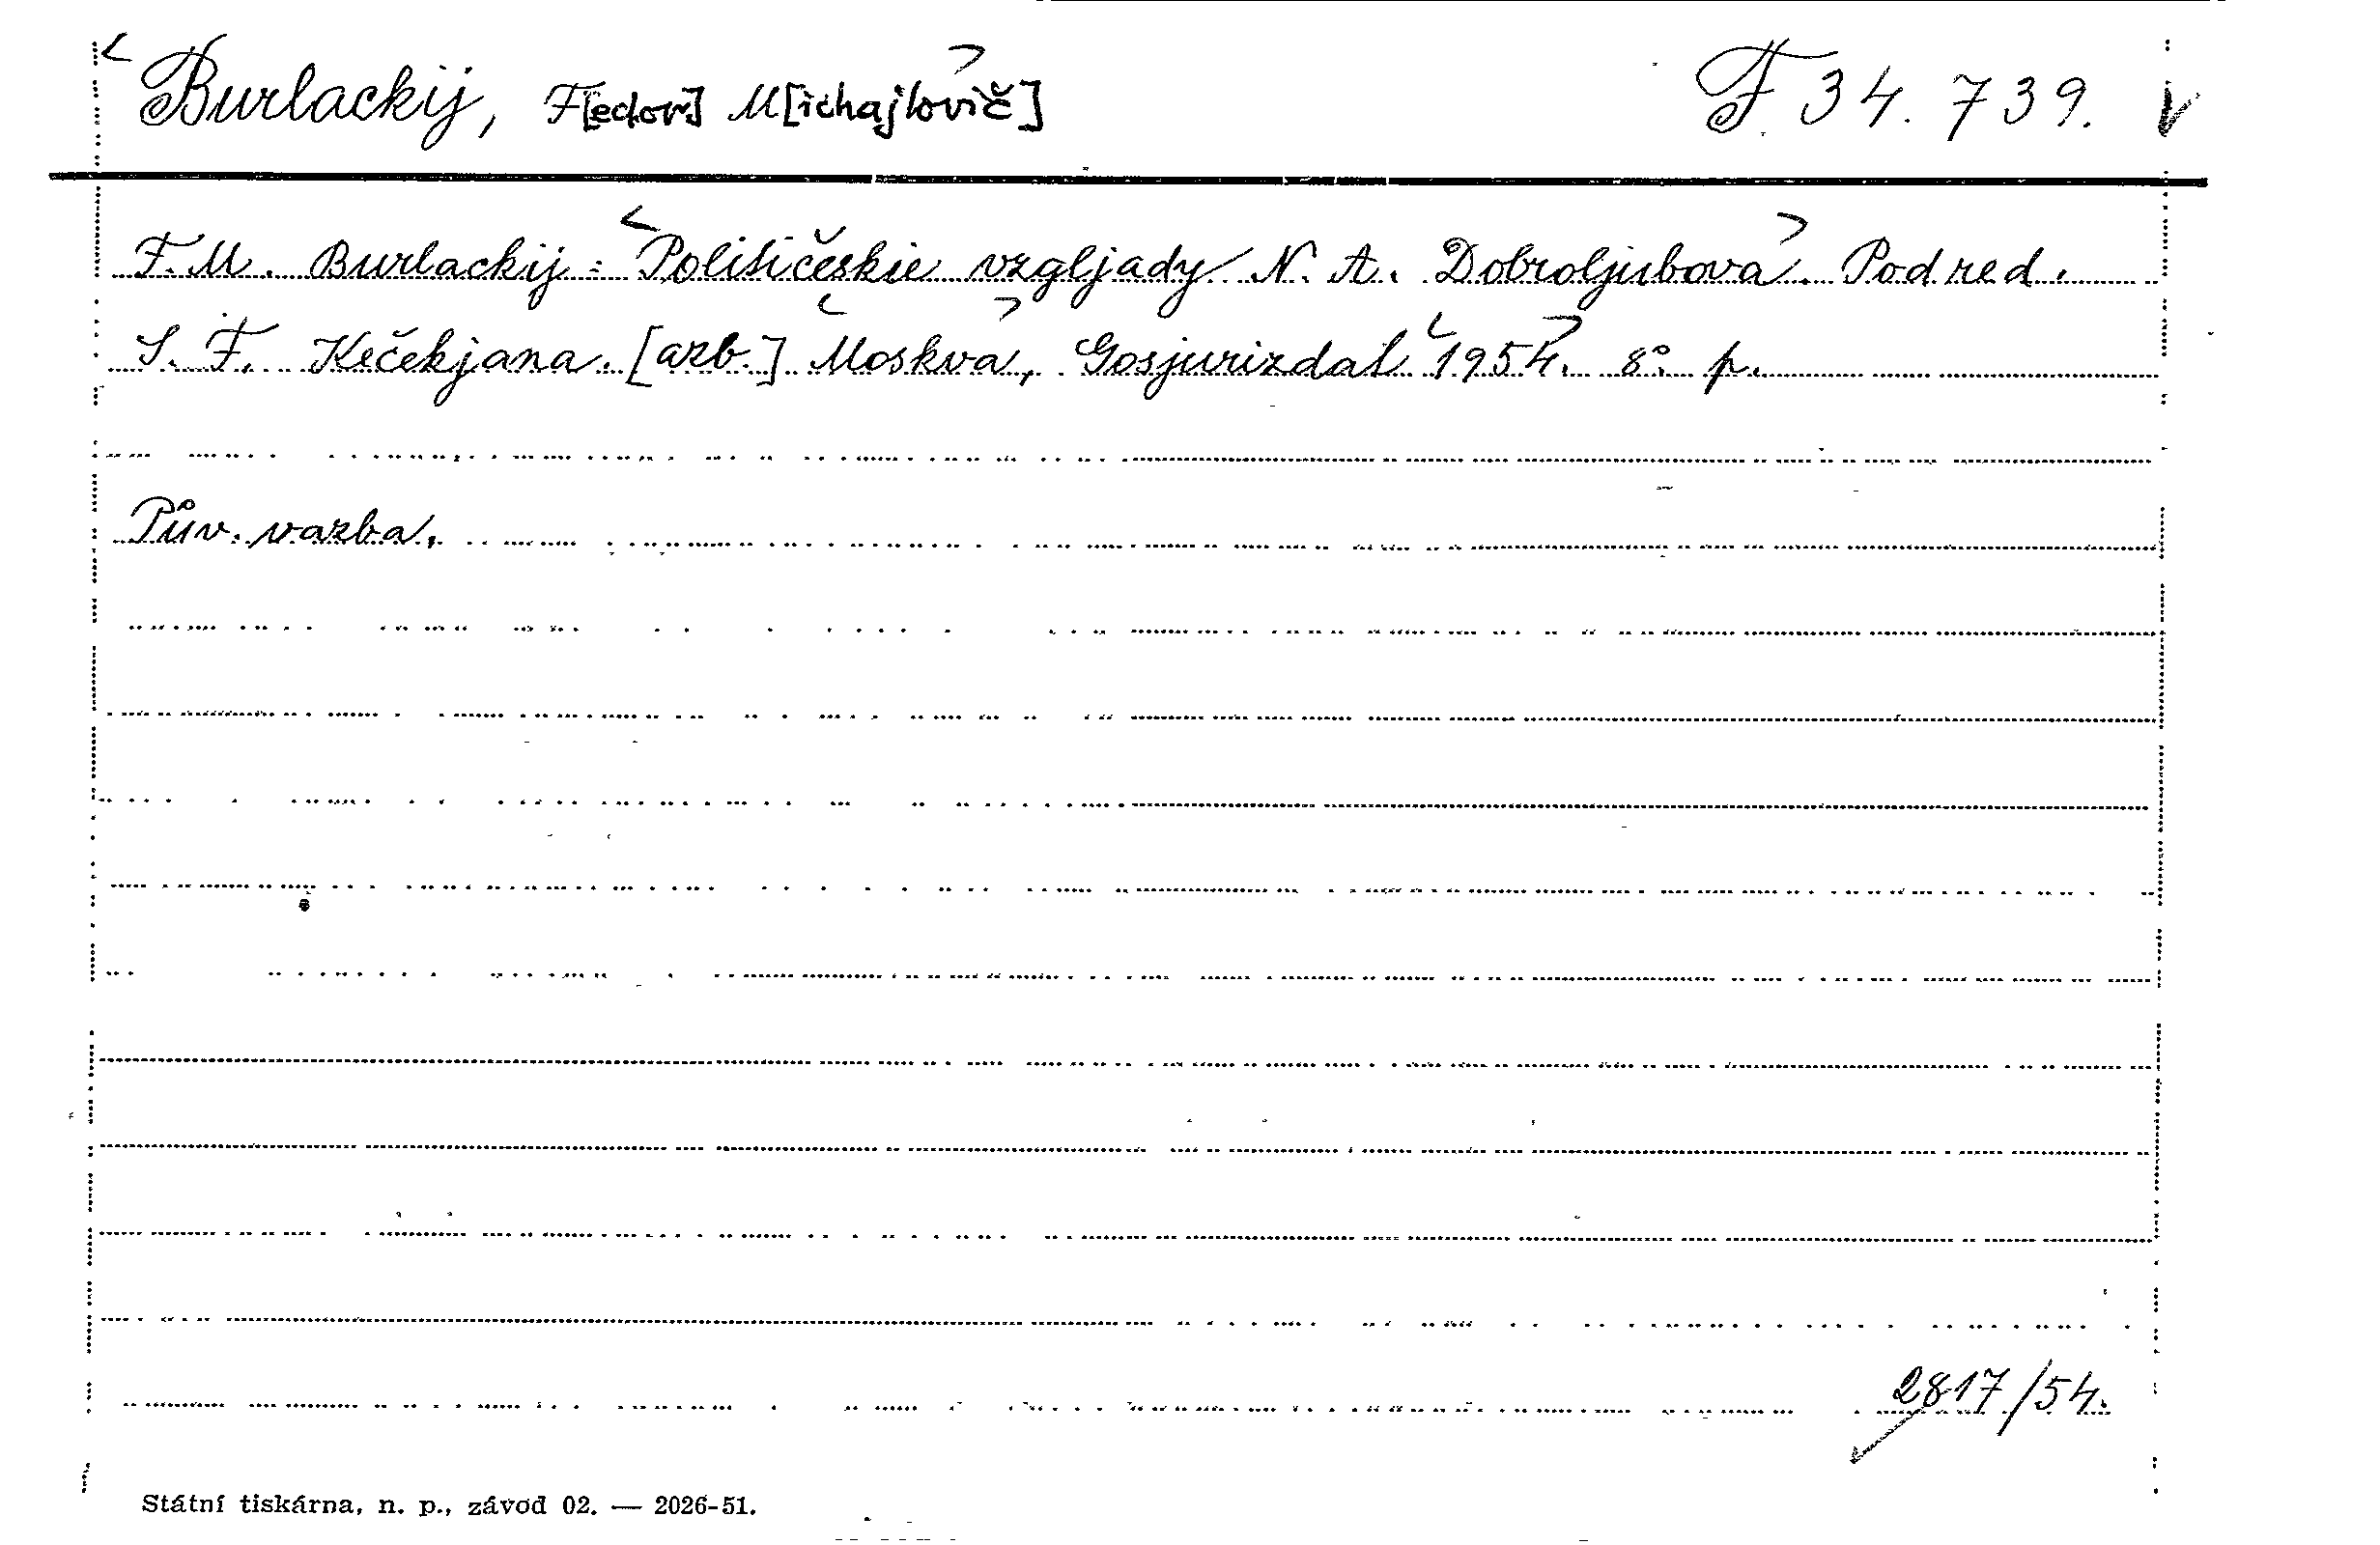 <Burlackij, F[edor] M[ichajlovič]> F 34.739. ✓
F. M. Burlackij: <Političeskie vzgljady N. A. Dobroljubova>. Pod red.
S. F. Kečekjana. [azb.] <Moskva>, Gosjurizdat <1954>. 8° p.
Pův. vazba.
2817/54.
Státní tiskárna, n. p., závod 02. — 2026-51.